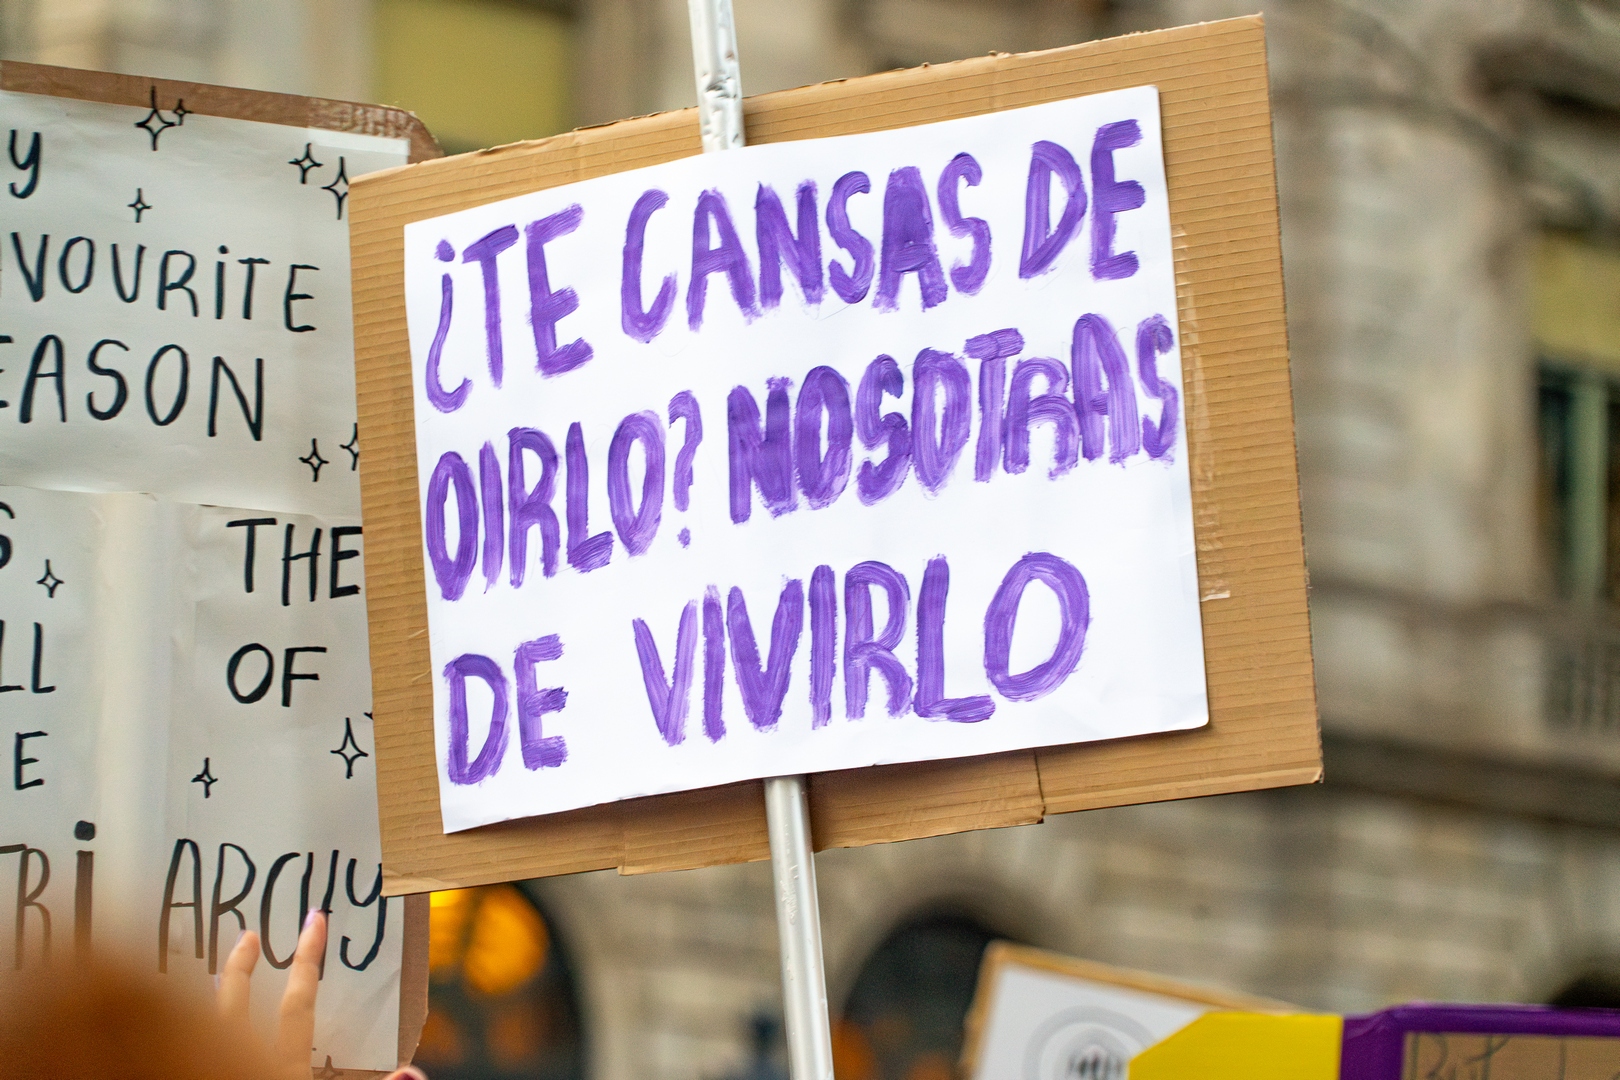 y
AVOURiTE
EASON
S
THE
LL
OF
E
TRiARCHY
¿TE CANSAS DE
OIRLO? NOSOTRAS
DE VIVIRLO
But